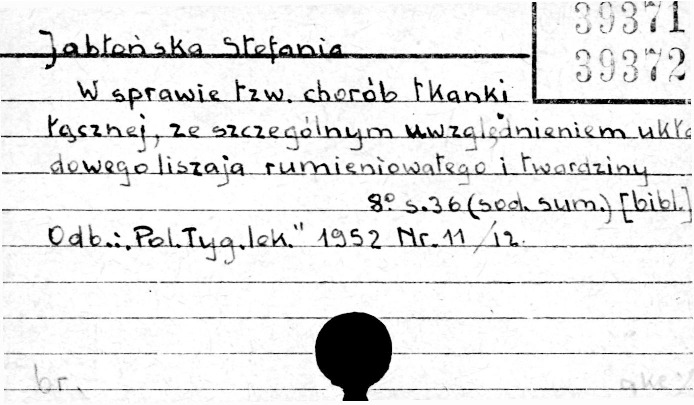 39371
Jabłońska Stefania
39372
W sprawie tzw. chorób tkanki
łącznej, ze szczególnym uwzględnieniem ukła
dowego liszaja rumieniowatego i twardziny
8° s.36 (sod. sum.) [bibl.]
Odb.: „Pol.Tyg.lek." 1952 Nr.11/12.
br.